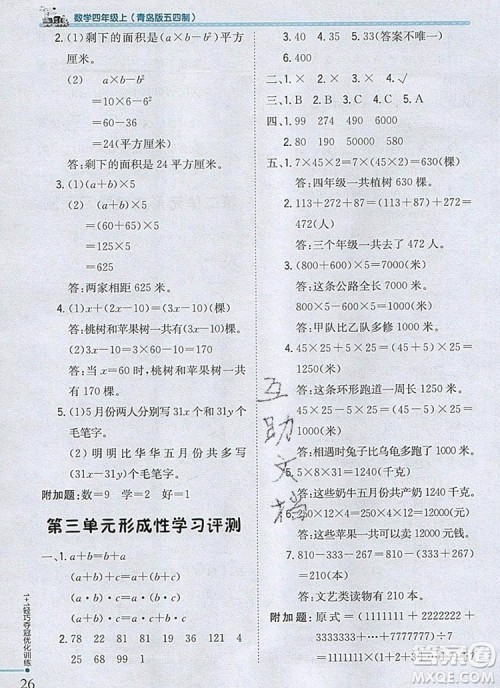 数学四年级上(青岛版五四制)
2. (1)剩下的面积是(a×b-b²)平方
厘米。
(2) a×b-b²
=10×6-6²
=60-36
=24(平方厘米)
答:剩下的面积是24平方厘米。
3. (1)(a+b)×5
(2) (a+b)×5
=(60+65)×5
=125×5
=625(千米)
答:两地相距625千米。
4. (1)x+(2x-10)=(3x-10)棵
答:桃树和苹果树一共有(3x-10)棵。
(2)3x-10=3×60-10=170(棵)
答:桃树和苹果树一共有
170棵。
5. (1)5月份两人分别写31x个和31z个
毛笔字。
(2)明明比华华五月份共多写
31(x-z)个毛笔字。
附加题:数=9 学=2 好=1
第三单元形成性学习评测
一、1. a+b=b+a
(a+b)+c=a+(b+c)
(a·b)·c=a·(b·c)
(a+b)·c=a·c+b·c
2. 74 138 64 4 7 b
25 68 99 1
3. 40 4. 35 5. 33(答案不唯一)
6. 29
二、1. × 2. × 3. × 4. √
三、1. B 2. A 3. B 4. B
四、1. 99 274 490 6000
2. 80 190 50000 580
五、1. 7×45×2=7×(45×2)=630(棵)
答:四年级一共植树630棵。
2. 113+272+87=(113+87)+272
=472(人)
答:三个年级一共去了472人。
3. (800+600)×5=7000(米)
答:这条公路全长7000米。
800×5-600×5=1000(米)
答:甲队比乙队多修1000米。
4. 25×50=1250(米)
答:这条环形跑道一周长1250米。
5. 45×25-5×25=1000(米)
答:相遇时兔子比乌龟多跑1000米。
5×8×31=1240(千克)
答:这些奶牛五月份共产奶1240千克。
6. 250×12×4=12000(元)
答:这些苹果一共可以卖12000元钱。
7.
答:文艺类读物有210本。
附加题: 原式=(1111111+2222222
+3333333+…+7777777)÷7
=1111111×(1+2+3+…
1+1轻巧夺冠优化训练
26
互助文档
答案圈
MXQE.COM